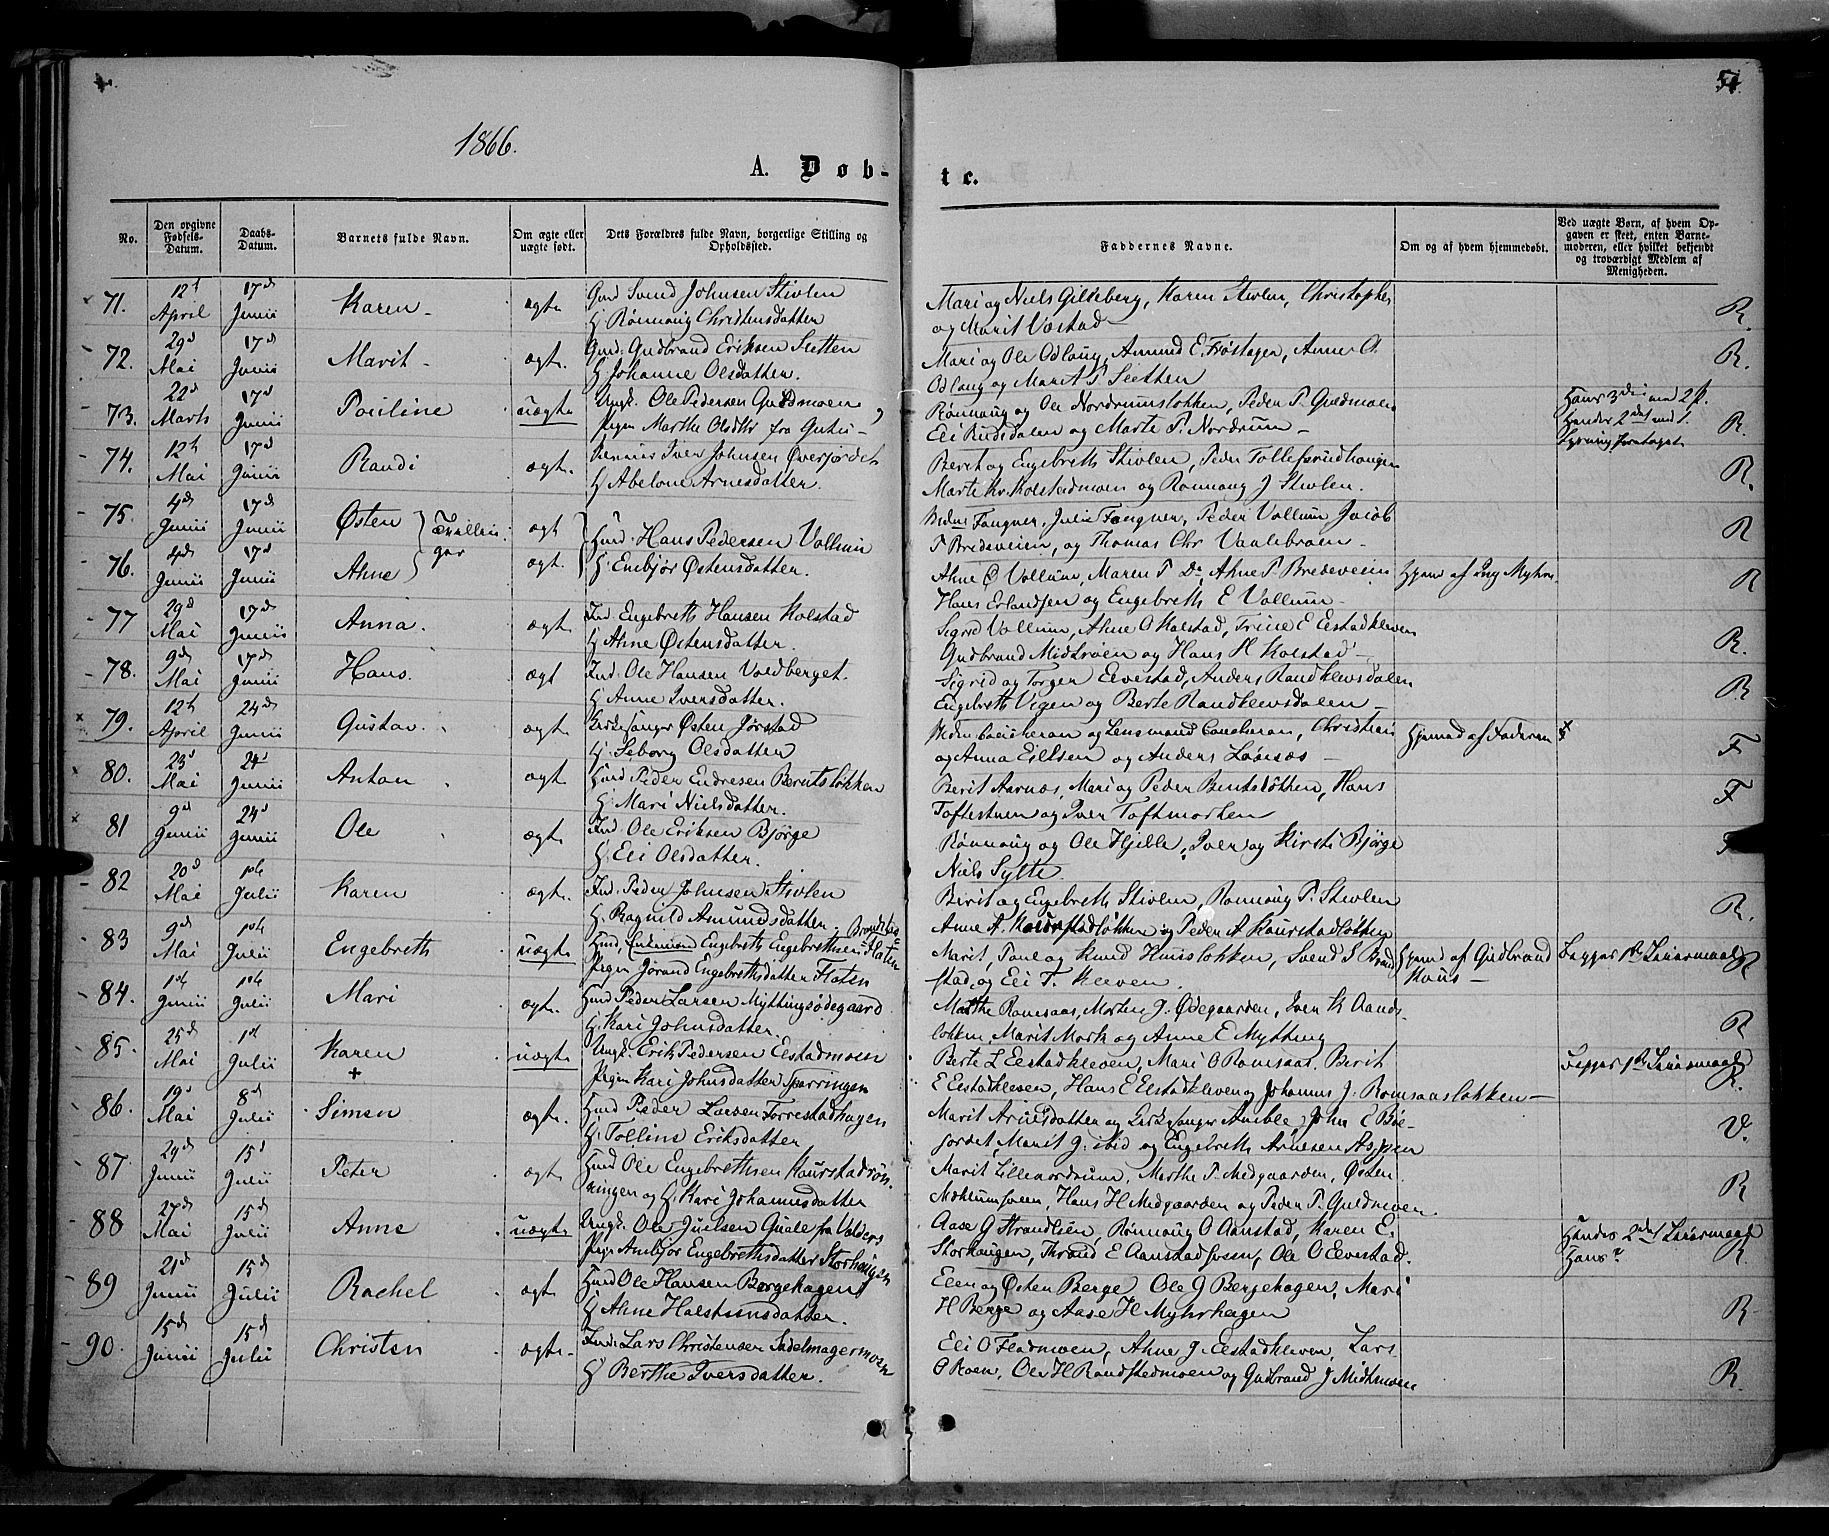 51.
1866.
A. Døb-
te.
No.
Den opgivne Fødsels-Datum.
Daabs-Datum.
Barnets fulde Navn.
Om ægte eller uægte født.
Dets Forældres fulde Navn, borgerlige Stilling og Opholdssted.
Faddernes Navne.
Om og af hvem hjemmedøbt.
Ved uægte Børn, af hvem Opgaven er skeet, enten Barnemoderen, eller hvilket bekjendt og troværdigt Medlem af Menigheden.
71. 12t April 17d Junii Karen ægte Svend Johnsen Stivlen
H Rønnaug Christensdatter
Mari og Niels Gilleberg, Karen Stivlen, Christopher
og Marit Vøstad R.
72. 29d Mai 17d Junii Marit ægt. Gudbrand Eriksen Sletten
H Johanne Olsdatter.
Mari og Ole Odlaug, Amund E. Frøstagen, Anne A.
Odlaug og Marit P Sletten R.
73. 22d Marts 17d Junii Pauline uægte Ungk. Ole Pedersen Guldmoen
Pigen Marthe Olsdtr fra
Rønnaug og Ole Nordrumsløkken, Peder P. Guldmoen
Eli Rudsdalen og Marte P. Nordrum R.
74. 12t Mai 17d Junii Randi ægt. Iver Johnsen Øverjordet
H Abelone Arnesdatter.
Berit og Engebreth Stivlen, Peder Tollefsrudhaugen
Marte Kr. Kolstadmoen og Rønnaug J Stivlen. R.
75. 4d Junii 17d Junii Østen Tvillin- ægt Hmd. Hans Pedersen Vollum
Fangner, Julie Fangner, Peder Vollum, Jacob
P Bredeveien, og Thomas Chr Vaalebroen R
76. 4d Junii 17d Junii Ahne ger ægt. H. Embjør Østensdatter.
Ahne Ø Vollum, Maren P Do, Ahne P Bredeveien Hjem af Myhre
Hans Erlandsen og Engebreth E Vollum R
77 29d Mai 17d Junii Anna. ægt. Ind. Engebreth Hansen Kolstad
H Ahne Østensdatter.
Sigrid Vollum, Ahne O Kolstad, Trine E Elstadkleven
Gudbrand Midtmoen og Hans H Kolstad R.
78. 9d Mai 17d Junii Hans. ægt Ind. Ole Hansen Voldberget.
H. Anne Iversdatter.
Sigrid og Torger Elvestad, Anders Randklevsdalen
Engebreth Vigen og Berte Randklevsdalen R
79. 12t April 24d Junii Gustav. ægt. Kirkesanger Østen Jørstad
H. Seborg Olsdatter
og Lensmand, Christian Hjemd af Faderen
og Anna Eilsen og Anders F
80. 23d Mai 24d Junii Anton ægt Hmd Peder Endresen Berntsløkken
H. Mari Nielsdatter.
Berit Aarnæs, Mari og Peder Bentsløkken, Hans
Toftestuen og Iver Toftmarken F
81 9d Junii 24d Junii Ole ægte Ind. Ole Eriksen Bjørge
H. Eli Olsdatter.
Rønnaug og Ole Hjelle, Iver og Kirsti Bjørge
Niels Sylte F
82 20d Mai 1ste Julii Karen ægte. Ind. Peder Johnsen Stivlen
H. Ragnild Amundsdatter
Berit og Engebreth Stivlen, Rønnaug P. Stivlen
Anne A. Kaurstadløkken og Peder A Kaurstadløkken R.
83 9d Mai 1ste Julii Engebreth uægte Hmd. Enkemand Engebreth Engebrethsen
Pigen Jørand Engebrethsdatter Flaten
Marit, Paul og Knud Huusløkken, Svend S Brand- Hjemd af Gudbrand Begges 1ste Leiermaal R
stad og Eli T. Kleven. Huus
84. 1ste Junii 1ste Julii Mari ægt. Hmd Peder Larsen Myttingsødegaard
H. Kari Johnsdatter.
Marthe Romsaas, Morten J. Ødegaarden, Iver K Aands-
løkken, Marit Mork og Anne E Mytting R
85. 25d Mai 1st Julii Karen + uægte Ungk. Erik Pedersen Elstadmoen
Pigen Kari Johnsdatter Sparringen
Berte L Elstadkleven, Mari O Romsaas, Berit Begges 1ste Leiermaal
E Elstadkleven, Hans E Elstadkleven og Johannes J. Romsaasløkken R.
86. 19d Mai 8d Julii Simen ægte. Hmd Peder Larsen Forrestadhagen
H. Polline Eriksdatter
Marit Arnesdatter og Kirkesanger Amble, John E Bøe-
jordet, Marit J. ibid og Engebreth Arnesen Aspesen V.
87. 24d Junii 15d Julii Peter ægt Hmd Ole Engebrethsen Kaurstadrøn-
ningen og H. Kari Johannesdatter
Marit Lillenordrum, Marthe P. Medgaarden, Østen
Hans H Medgaarden og Peder P. Guldmoen. R
88 27d Mai 15d Julii Anne uægte Ungk. Ole Juelsen Quale fra Valders
Pige Ambjør Engebrethsdatter Storhaugen
Aase G Strandlien, Rønnaug O Aanstad, Karen E. Hendes 2det Leiermaal
Storhaugen, Thrond E Aanstad, Ole O Elvestad. Hans ? R.
89 21d Junii 15d Julii Rachel ægt. Hmd Ole Hansen Bergehagen
H Ahne Halstensdatter.
Elen og Østen Berge, Ole J Bergehagen, Mari
H Berge og Aase H Myhrhagen R
90. 15d Junii 15d Julii Christen ægte Ind. Lars Christensen Sadelmagermoen
H Berthe Iversdatter.
Eli O Fladmoen, Ahne J. Elstadkleven, Lars
O Moen, Ole H Randstedmoen og Gudbrand J Midtmoen R.